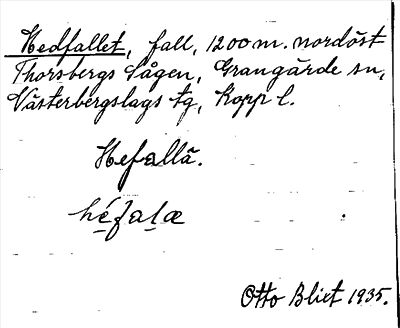 Hedfallet, fall, 1200 m. nordöst
Thorsbergs Sågen, Grangärde sn,
Västerbergslags tg, Kopp l.
Hefallä.
héfalæ
Otto Blixt 1935.